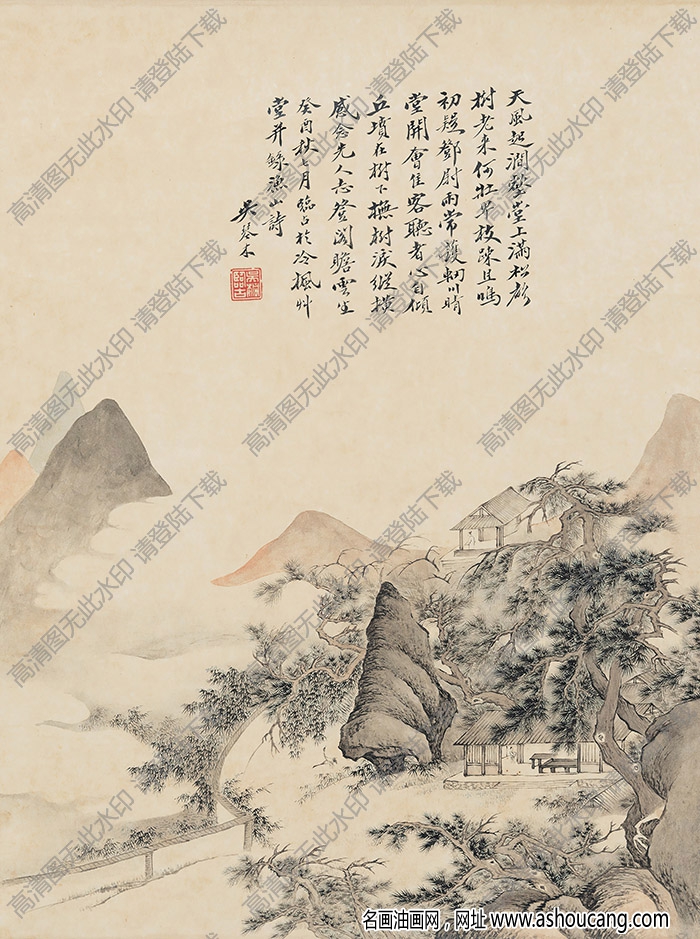 天風起澗壑堂上滿松聲
樹老來何壯枝疎且鳴
初疑鄧尉雨常護輞川晴
堂開會佳客聽者心自傾
丘墳在樹下撫樹淚縱橫
感念先人志登閣瞻雲生
癸酉秋七月臨古於冷楓艸
堂并錄漁山詩
吳琴木
高清图无此水印 请登陆下载
高清图无此水印 请登陆下载
高清图无此水印 请登陆下载
高清图无此水印 请登陆下载
高清图无此水印 请登陆下载
高清图无此水印 请登陆下载
高清图无此水印 请登陆下载
高清图无此水印 请登陆下载
高清图无此水印 请登陆下载
高清图无此水印 请登陆下载
高清图无此水印 请登陆下载
高清图无此水印 请登陆下载
名画油画网，网址 www.ashoucang.com